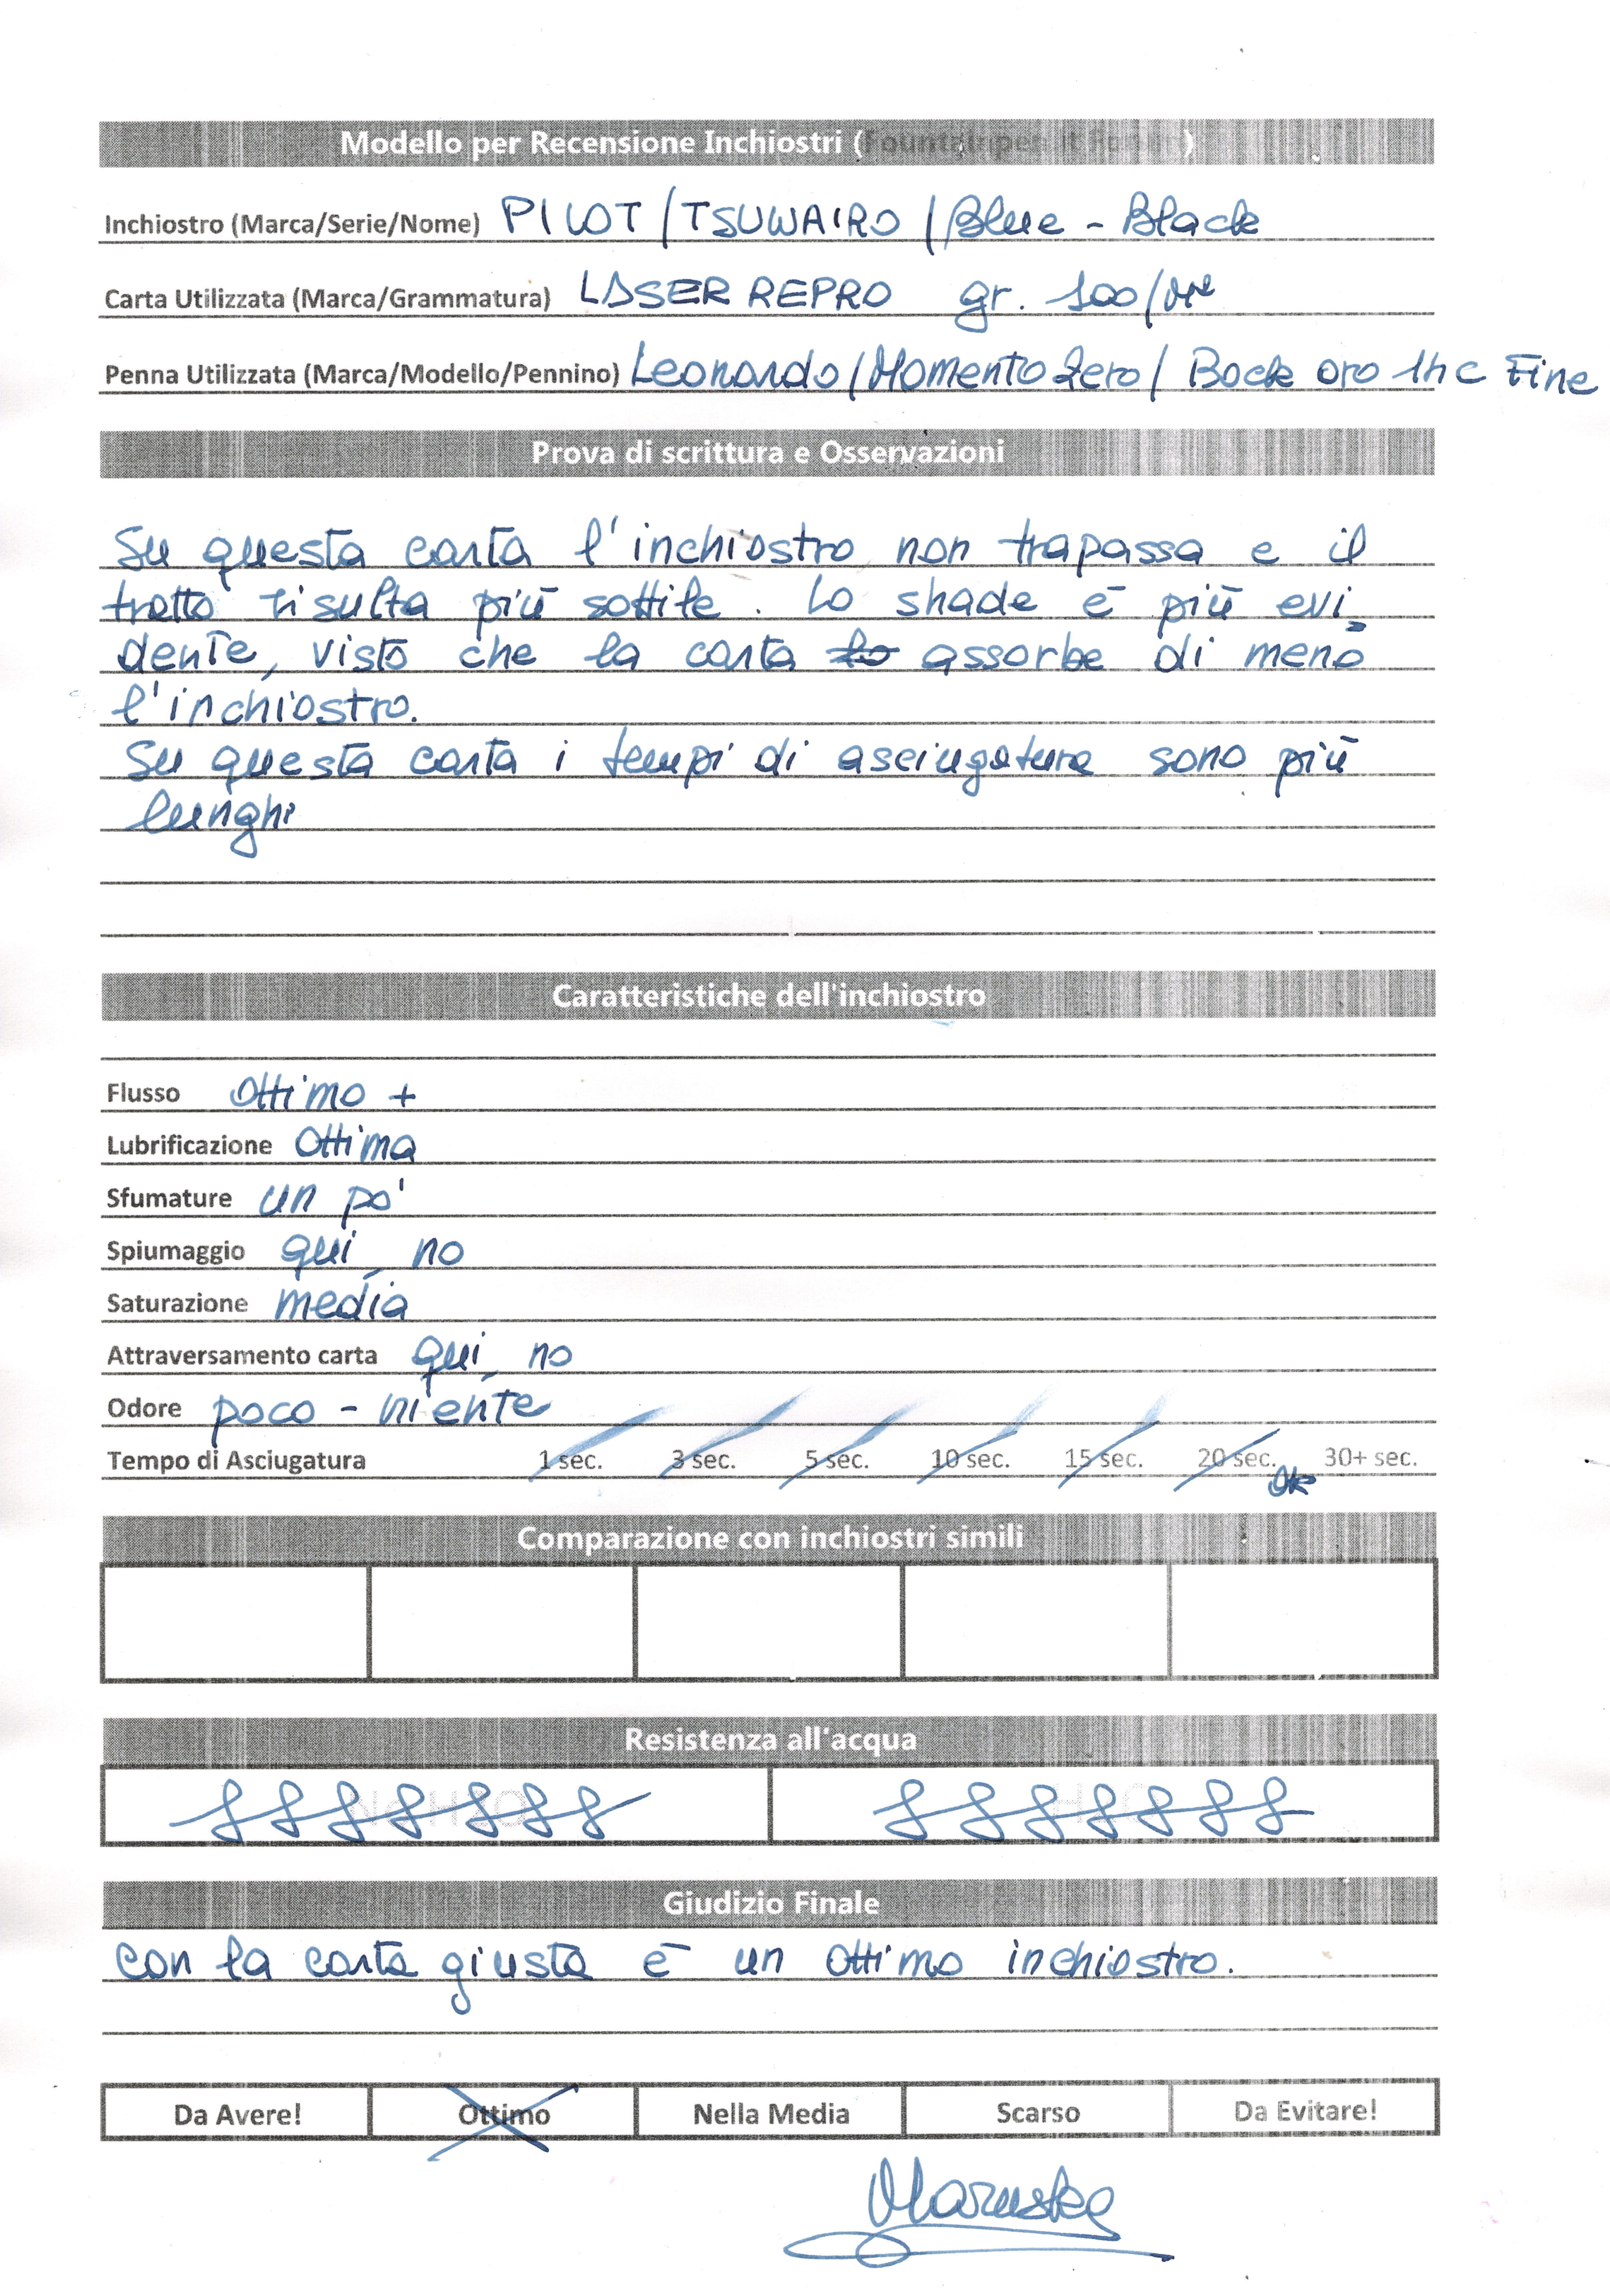 Modello per Recensione Inchiostri (Fountainpen.it Forum)
Inchiostro (Marca/Serie/Nome) PILOT/TSUWAIRO/Blue-Black
Carta Utilizzata (Marca/Grammatura) LASER REPRO gr. 100/
Penna Utilizzata (Marca/Modello/Pennino) Leonardo/Momento Zero/ Bock oro 14c Fine
Prova di scrittura e Osservazioni
Su questa carta l'inchiostro non trapassa e il
tratto risulta più sottile. Lo shade è più evi
dente, visto che la carta lo assorbe di meno
l'inchiostro.
Su questa carta i tempi di asciugatura sono più
lunghi
Caratteristiche dell'inchiostro
Flusso Ottimo +
Lubrificazione Ottima
Sfumature un po'
Spiumaggio qui, no
Saturazione media
Attraversamento carta qui, no
Odore poco - niente
Tempo di Asciugatura 1 sec. 3 sec. 5 sec. 10 sec. 15 sec. 20 sec. ok 30+ sec.
Comparazione con inchiostri simili
Resistenza all'acqua
No H2O H2O
Giudizio Finale
con la carta giusta è un ottimo inchiostro.
Da Avere! Ottimo Nella Media Scarso Da Evitare!
Maruska